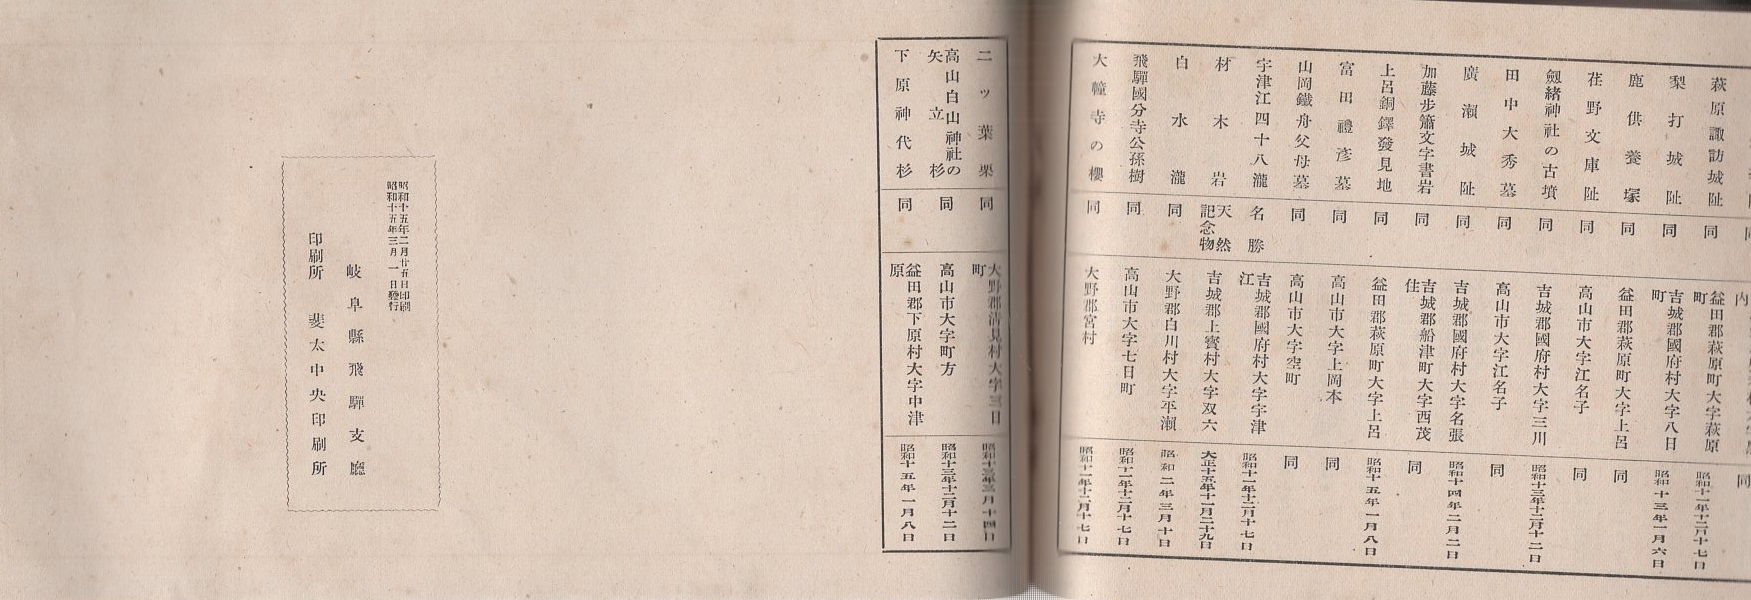 萩原諏訪城阯 同 益田郡萩原町大字萩原町 昭和十一年十二月十七日
梨打城阯 同 吉城郡國府村大字八日町 昭和十三年一月六日
鹿供養塚 同 益田郡萩原町大字上呂 同
荏野文庫阯 同 高山市大字江名子 同
劔緒神社の古墳 同 吉城郡國府村大字三川 昭和十三年十二月十二日
田中大秀墓 同 高山市大字江名子 同
廣瀬城阯 同 吉城郡國府村大字名張 昭和十四年二月二日
加藤步簫文字書岩 同 吉城郡船津町大字西茂住 同
上呂銅鐸發見地 同 益田郡萩原町大字上呂 昭和十五年一月八日
富田禮彥墓 同 高山市大字上岡本 同
山岡鐵舟父母墓 同 高山市大字空町 同
宇津江四十八瀧 名勝 吉城郡國府村大字宇津江 昭和十一年十二月十七日
材木岩 天然記念物 吉城郡上寳村大字双六 大正十五年十一月二十九日
白水瀧 同 大野郡白川村大字平瀬 昭和二年三月十日
飛驒國分寺公孫樹 同 高山市大字七日町 昭和十一年十二月十七日
大幢寺の櫻 同 大野郡宮村 昭和十一年十二月十七日
二ッ葉栗 同 大野郡清見村大字三日町 昭和十三年三月十四日
高山白山神社の矢立杉 同 高山市大字町方 昭和十三年十二月十二日
下原神代杉 同 益田郡下原村大字中津原 昭和十五年一月八日
昭和十五年二月廿五日印刷
昭和十五年三月一日發行
岐阜縣飛驒支廳
印刷所 斐太中央印刷所